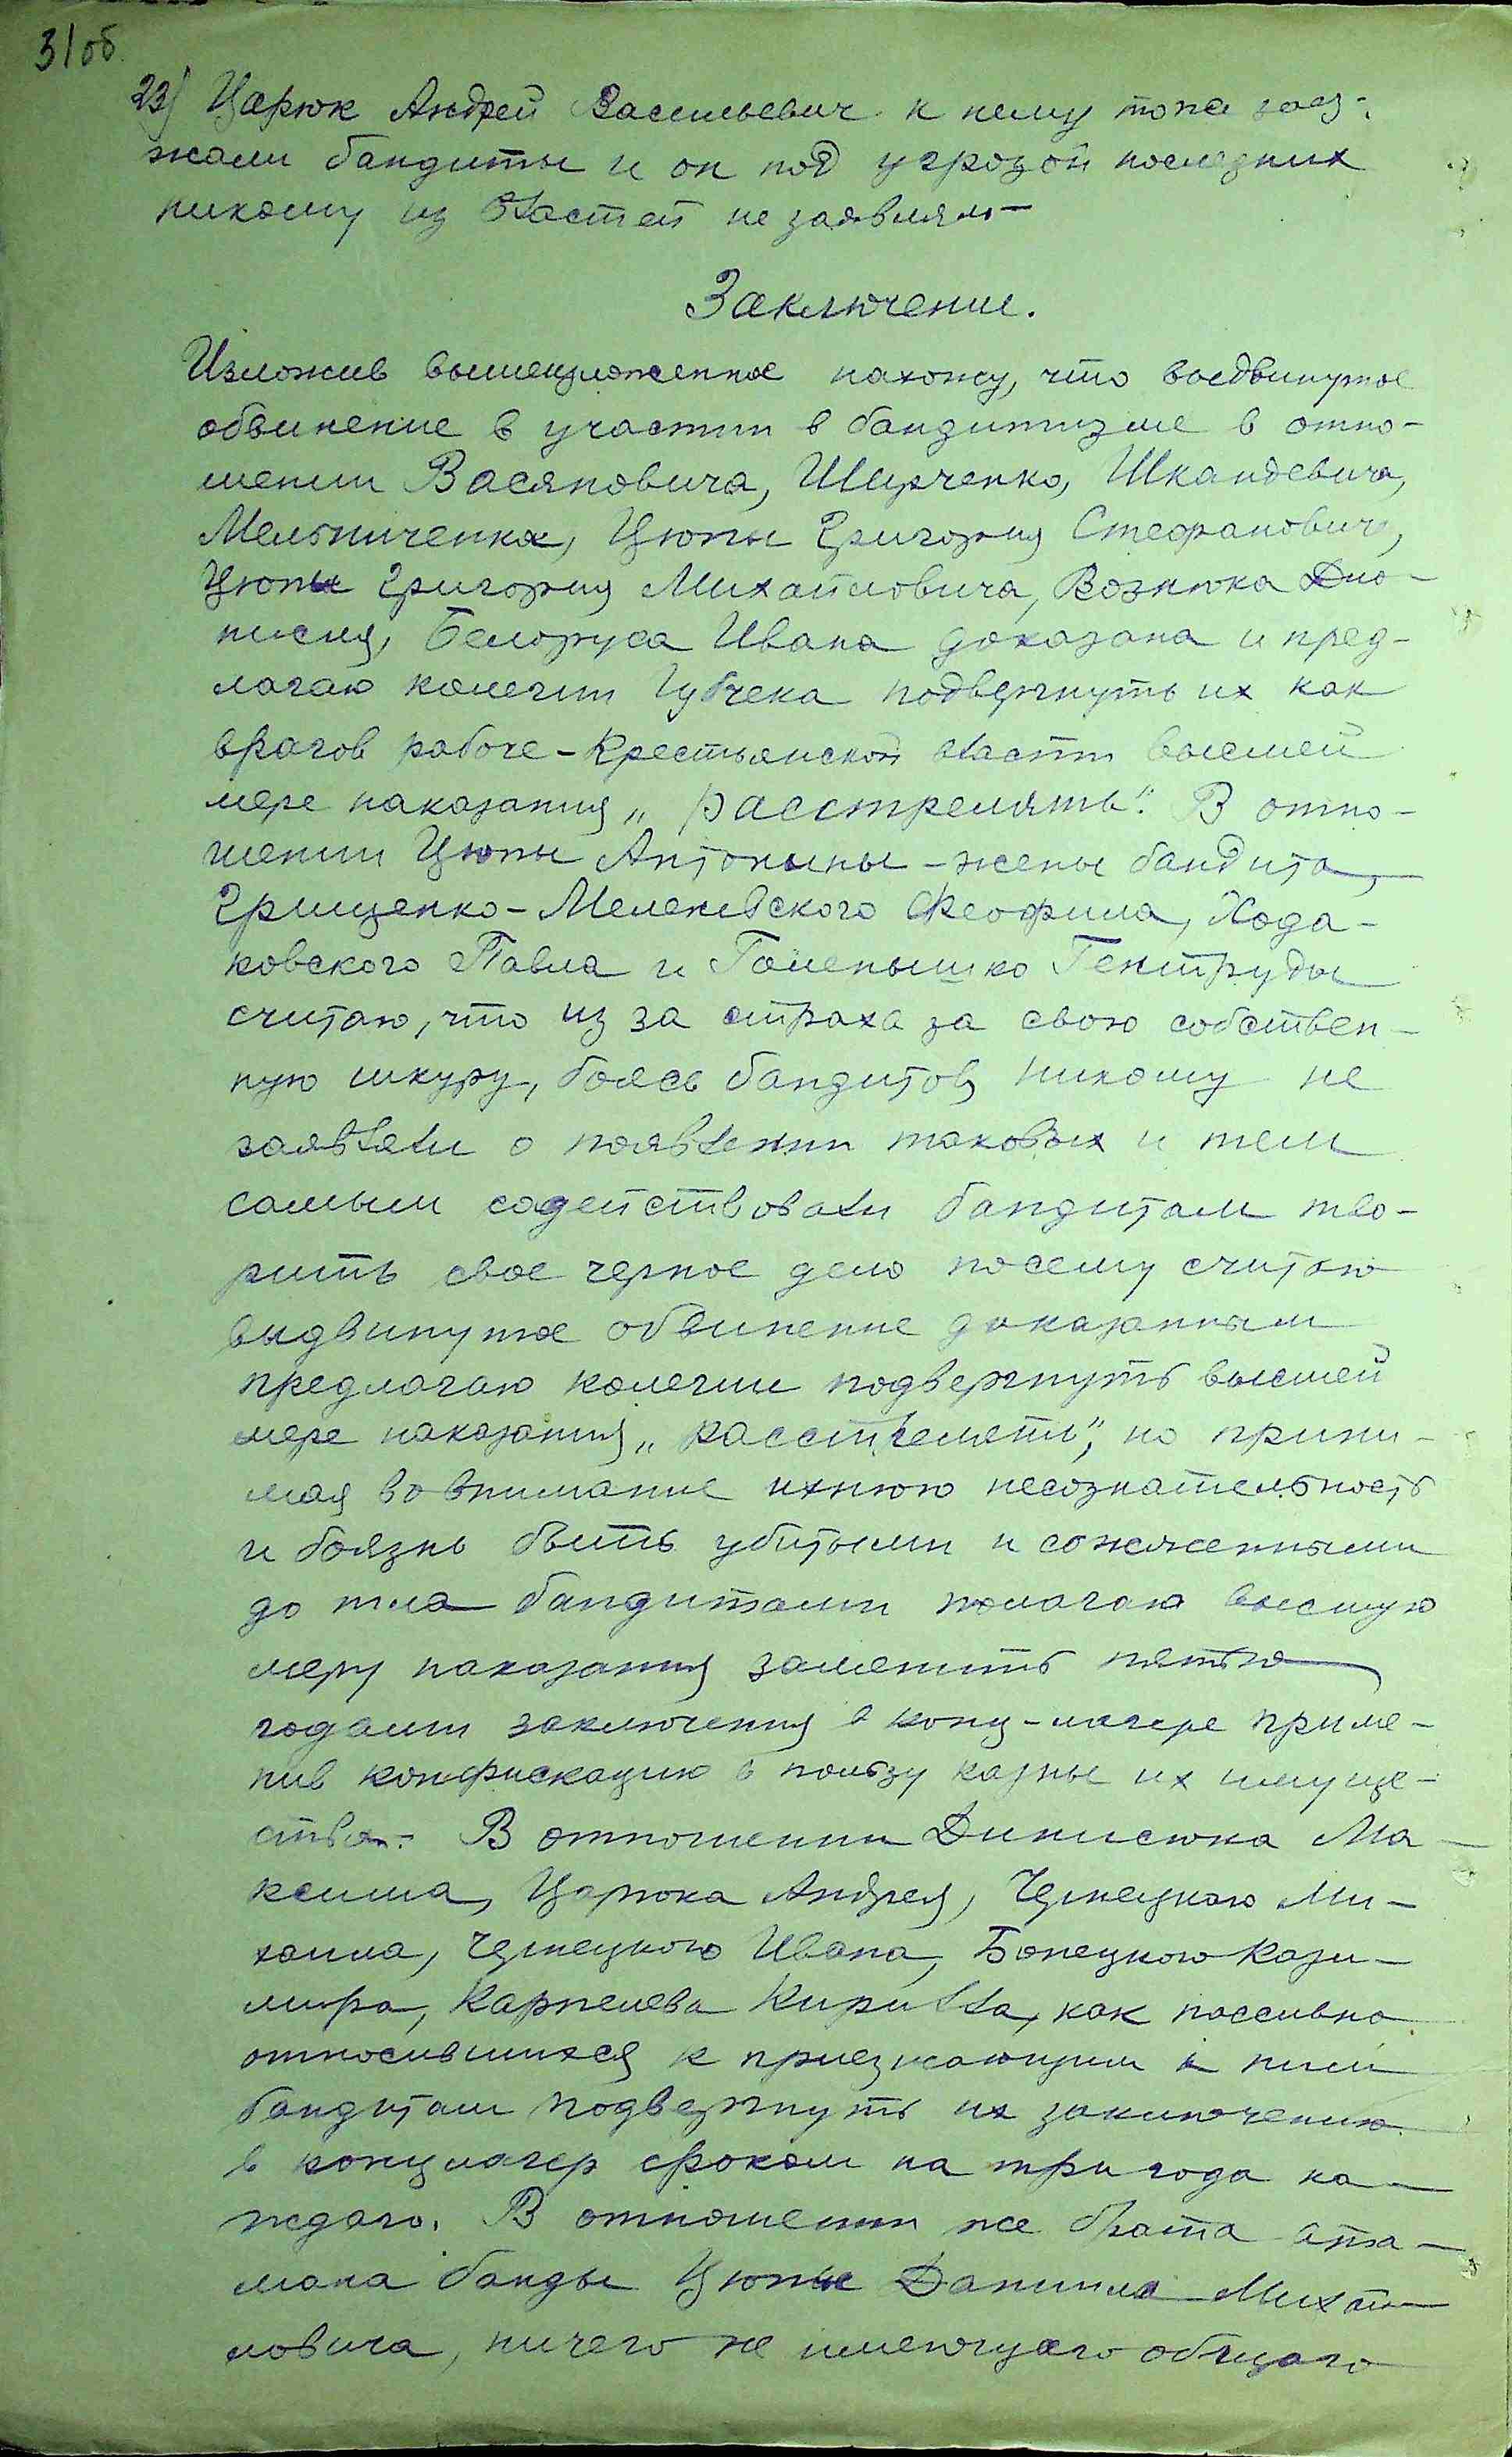 31об.
23) Царюк Андрей Васильевич к нему тоже заез-
жали бандиты и он под угрозой последних
никому из властей не заявлял —
Заключение.
Изложив вышеизложенное нахожу, что выдвинутое
обвинение в участии в бандитизме в отно-
шении Васяновича, Шурченко, Шкандевича,
Мельниченка, Цюпы Григория Стефановича,
Цюпы Григория Михайловича, Вознюка Дио-
нисия, Белоруса Ивана доказана и пред-
лагаю колегии Губчека подвергнуть их как
врагов рабоче-Крестьянской власти высшей
мере наказания „расстрелять". В отно-
шении Цюпы Антонины - жены бандита,
Грищенко-Меленевского Феофила, Хода-
ковского Павла и Гоменюшко Гентруды
считаю, что из за страха за свою собствен-
ную шкуру, боясь бандитов, никому не
заявляли о появлении таковых и тем
самым содействовали бандитам тво-
рить свое черное дело посему считаю
выдвинутое обвинение доказанным
предлагаю колегии подвергнуть высшей
мере наказания „расстрелять", но прини-
мая во внимание ихнюю несознательность
и боязнь быть убитыми и сожженными
до тла бандитами полагаю высшую
меру наказания заменить пятью
годами заключения в конц-лагере приме-
нив конфискацию в пользу казны их имуще-
ства. В отношении Динисюка Ма-
ксима, Царюка Андрея, Чернецкого Ми-
хаила, Чернецкого Ивана, Бонецкого Кази-
мира, Карпелева Кирилла, как пассивно
относившихся к приезжающим к ним
бандитам подвергнуть их заключению
в концлагер сроком на три года ка-
ждаго. В отношении же брата ата-
мана банды Цюпы Даниила Михай-
ловича, ничего не имеющаго общаго